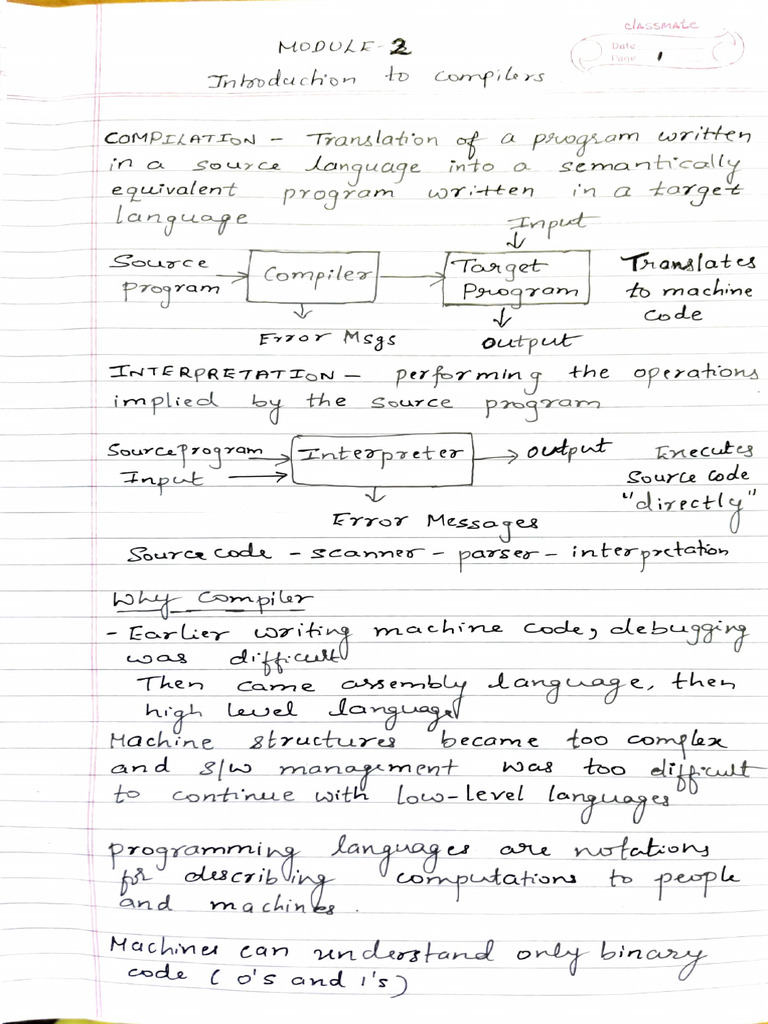 classmate
Date
Page 1
MODULE-2
Introduction to compilers
COMPILATION - Translation of a program written
in a source language into a semantically
equivalent program written in a target
language
Input
Source program
Compiler
Target Program
Translates to machine code
Error Msgs
output
INTERPRETATION - performing the operations
implied by the source program
Source program
Input
Interpreter
output
Executes source code "directly"
Error Messages
Source code - scanner - parser - interpretation
Why Compiler
- Earlier writing machine code, debugging
was difficult
Then came assembly language, then
high level language
Machine structures became too complex
and S/W management was too difficult
to continue with low-level languages
programming languages are notations
for describing computations to people
and machines.
Machines can understand only binary
code (0's and 1's)